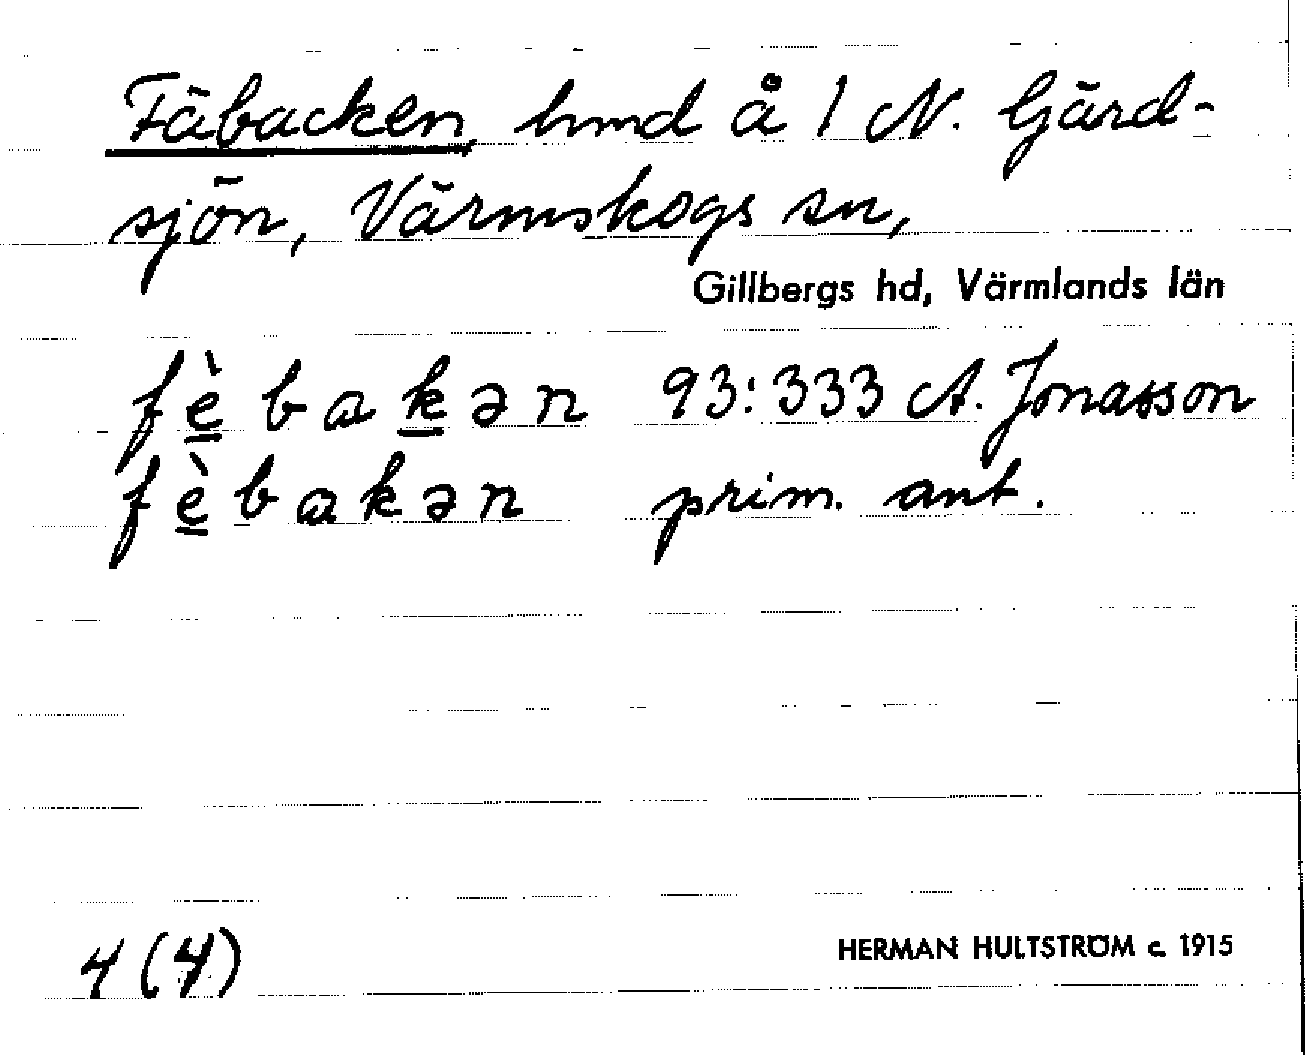 Fäbacken, hmd å 1 N. Gärd-
sjön, Värmskogs sn,
Gillbergs hd, Värmlands län
fèbakən 93:333 A. Jonasson
fèbakən prim. ant.
4(4)
HERMAN HULTSTRÖM c. 1915